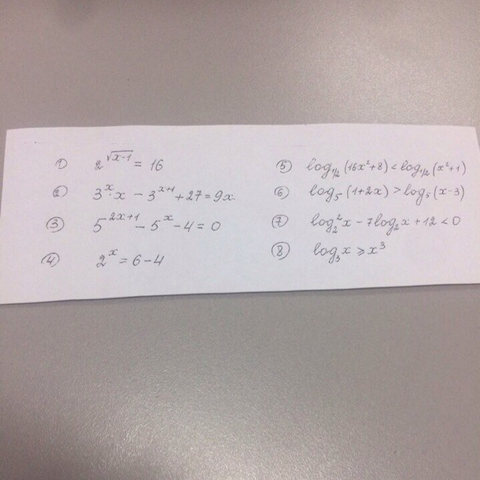 ① 2^{√(x-1)} = 16
② 3^x·x - 3^{x+1} + 27 = 9x.
③ 5^{2x+1} - 5^x - 4 = 0
④ 2^x = 6 - 4
⑤ log_{1/2}(16x²+8) < log_{1/2}(x²+1)
⑥ log_5(1+2x) > log_5(x-3)
⑦ log_2^2 x - 7log_2 x + 12 < 0
⑧ log_3 x ≥ x³